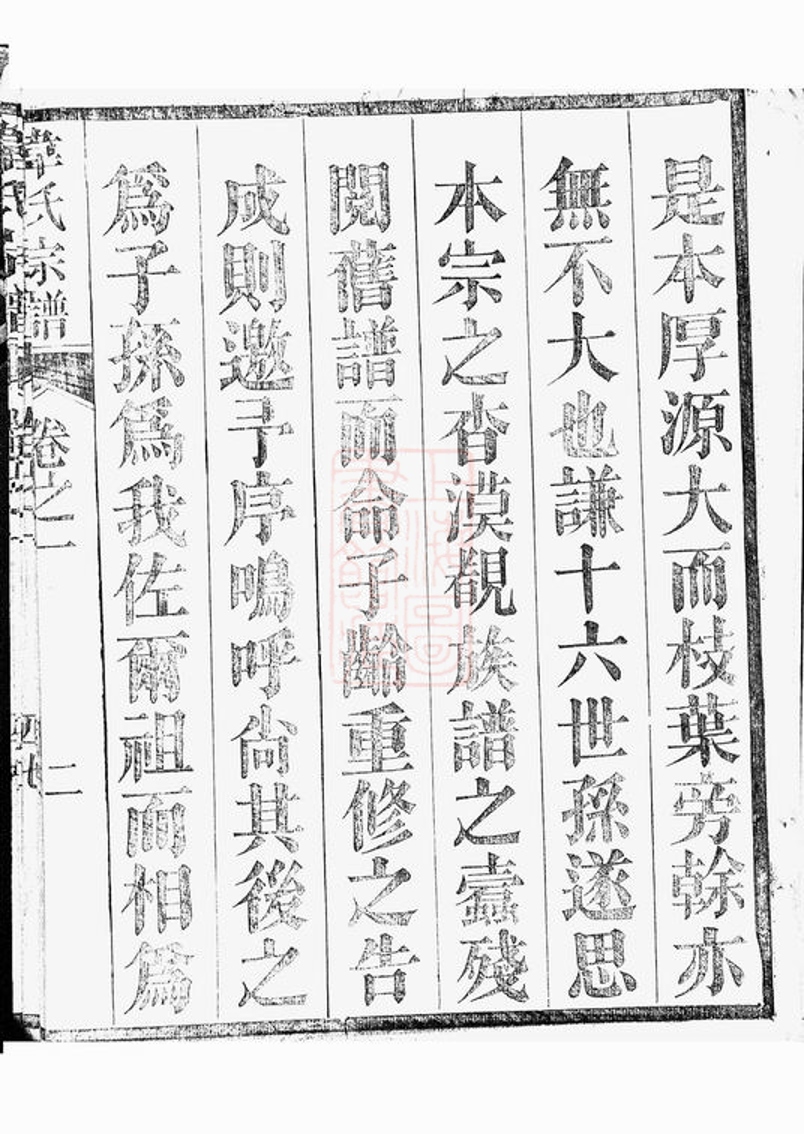 是本厚源大而枝葉旁榦亦
無不大也謙十六世孫遂思
本宗之杳漠覩族譜之蠹殘
閱舊譜而命子齡重修之告
成則邀予序嗚呼尙其後之
爲子孫爲我佐爾祖而相爲
氏宗譜
卷之一
二